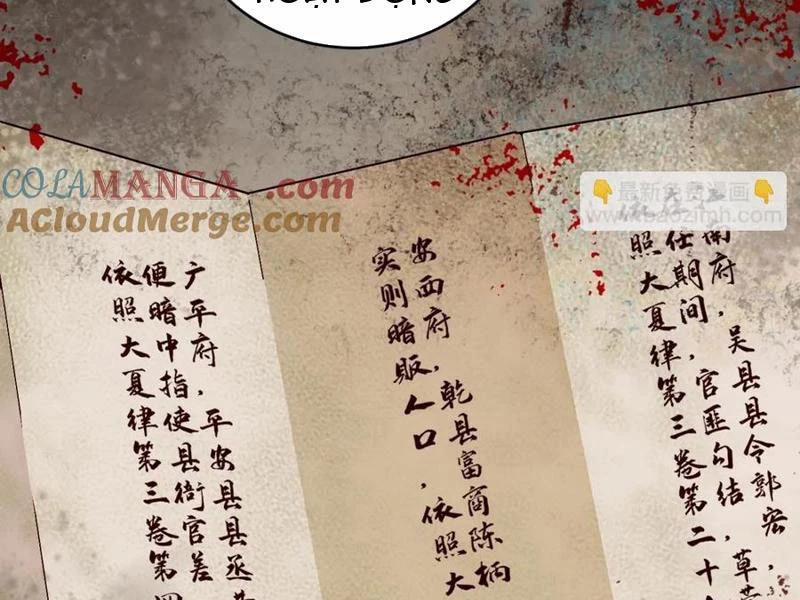 COLAMANGA.com
ACloudMerge.com
最新免费漫画
www.baozimh.com
府，吴县县令郭宏，
任期间，官匪勾结，草
照大夏律第三卷第二十
安西府，乾县富商陈柄
实则暗贩人口，依照大
广平府，平安县县丞
便暗中指使县衙官差
依照大夏律第三卷第四